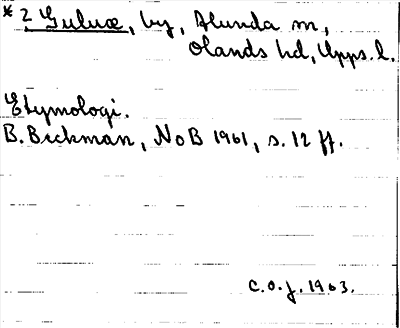 * 2 Guluæ, by, Alunda sn,
Olands hd, Upps. l.
Etymologi.
B. Beckman, NoB 1961, s. 12 ff.
C.O.J. 1963.